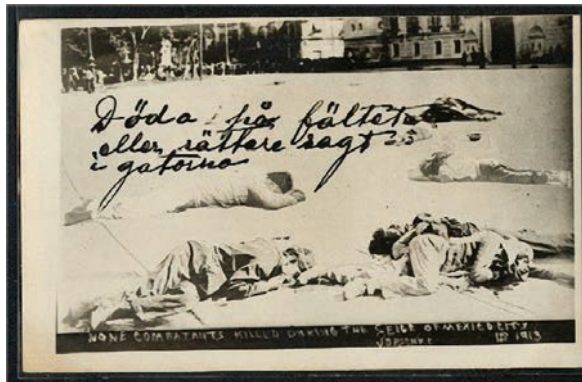 Döda på fältet
eller rättare sagt
i gatorna
NONE COMBATANTS KILLED DURING THE SEIGE OF MEXICO CITY
1913